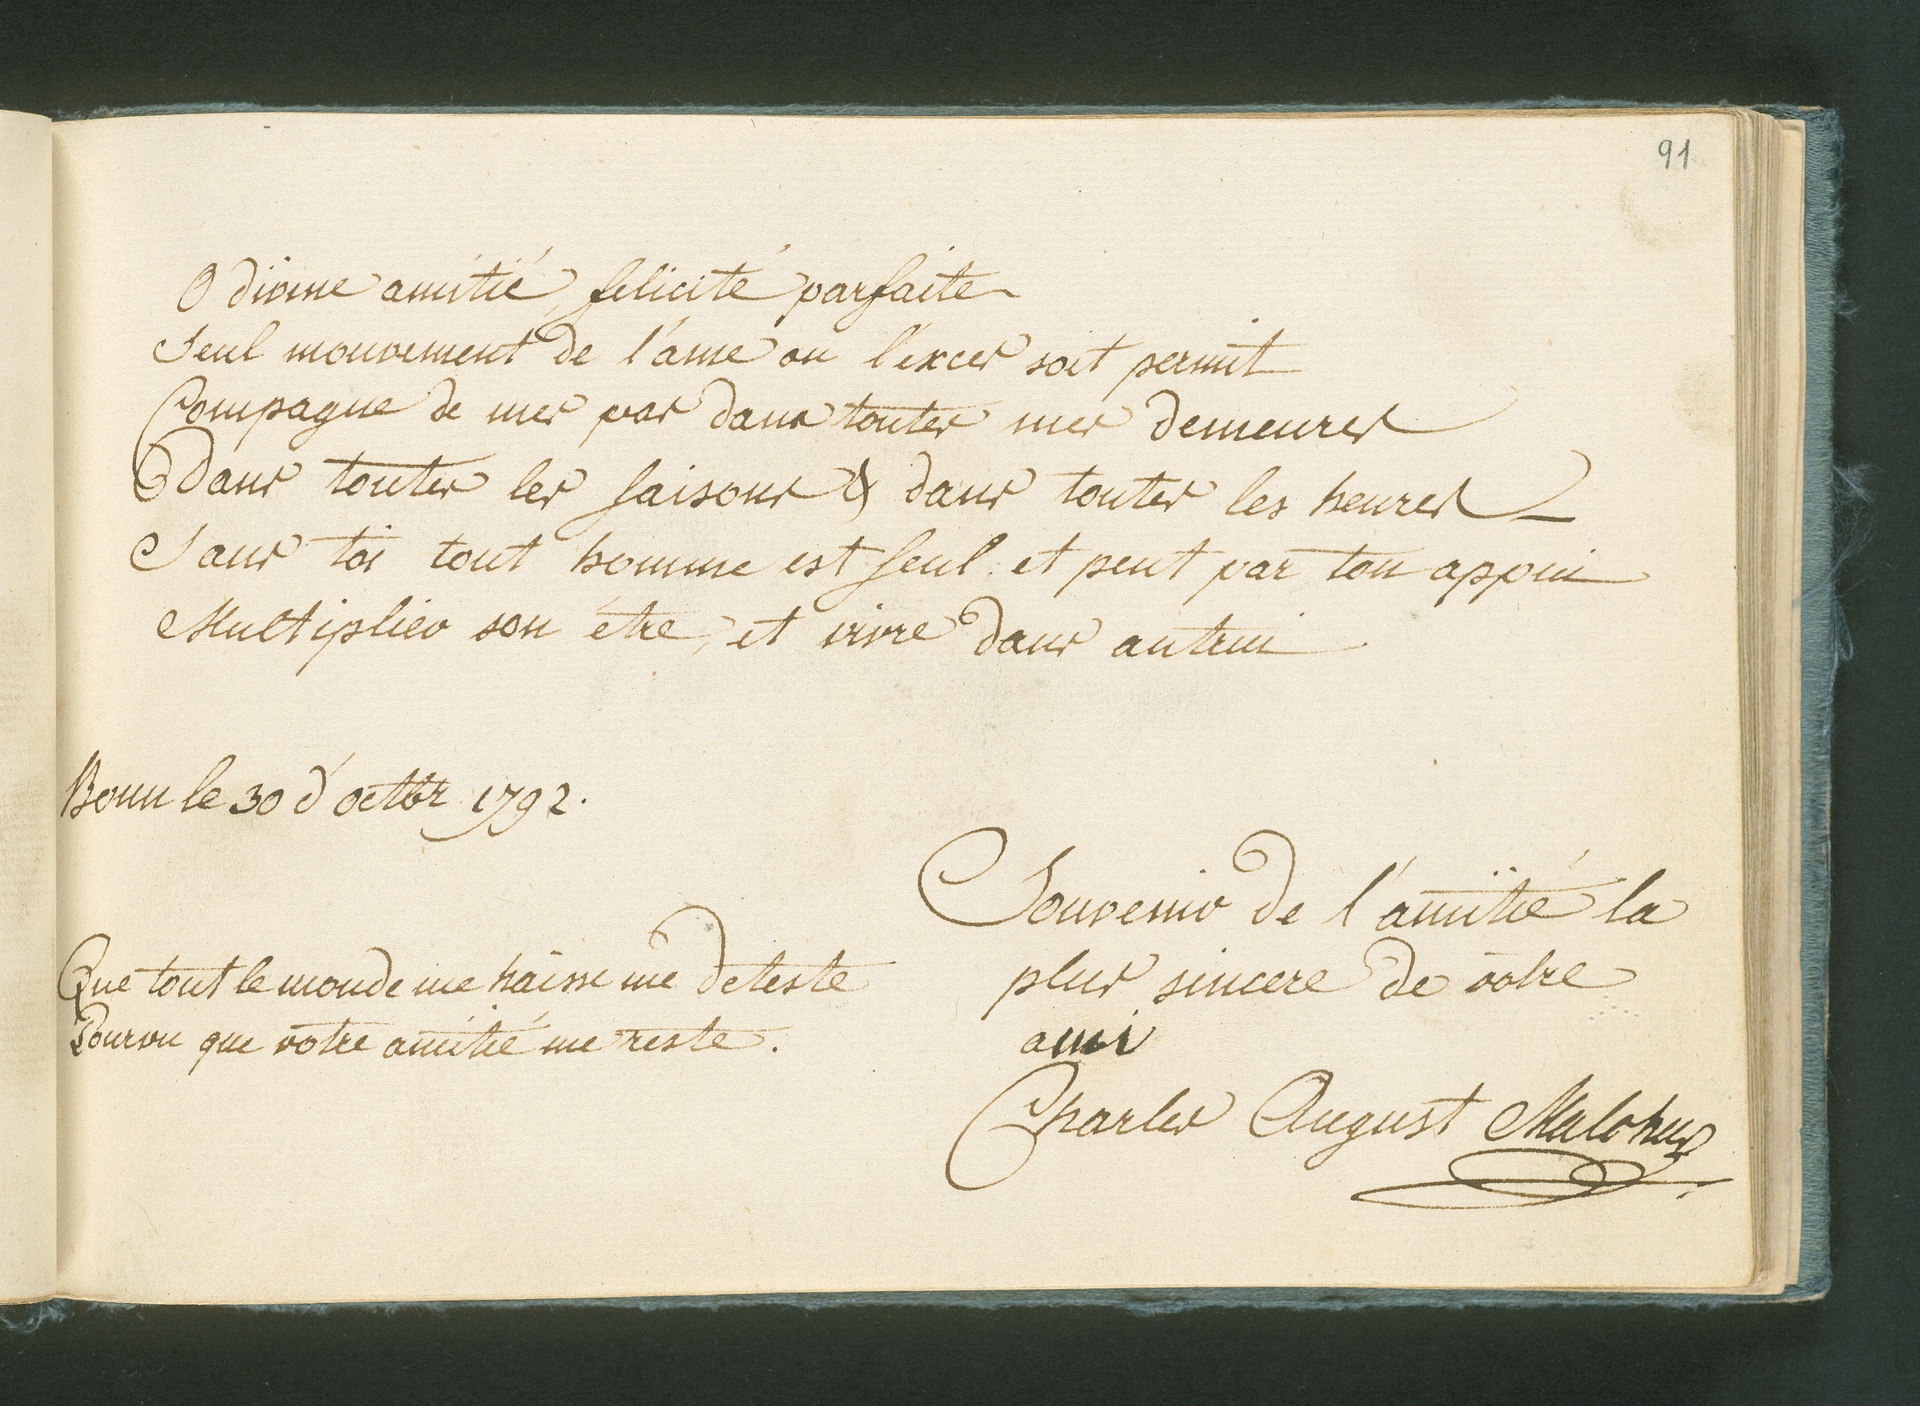 91
O divine amitié, felicité parfaite
Seul mouvement de l'ame ou l'exces soit permit
Compagne de mes pas dans toutes mes demeures
Dans toutes les saisons & dans toutes les heures
Sans toi tout homme est seul. et peut par ton appui
Multiplier son être, et vivre dans autrui
Bonn le 30 d'octbr 1792.
Souvenir de l'amitié la
plus sincere de votre
ami
Charles August Malchus
Que tout le monde me haïsse me deteste
Pourvu que votre amitié me reste.